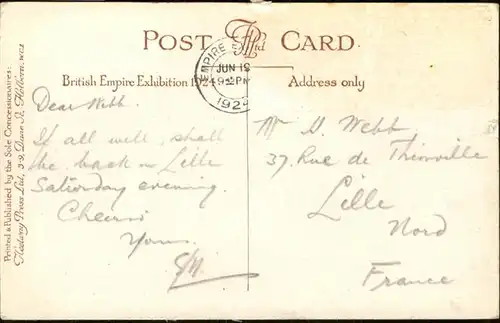 POST CARD
EMPIRE
JUN 19
9 PM
1924
British Empire Exhibition 1924
Address only
Printed & Published by the Sole Concessionaires:
Fleetway Press Ltd, 3-9, Dane St, Holborn. WC2
Dear Webb
If all well, shall
be back in Lille
Saturday evening.
Cheerio
Yours
Mr. G. Webb
37, Rue de Thionville
Lille
Nord
France